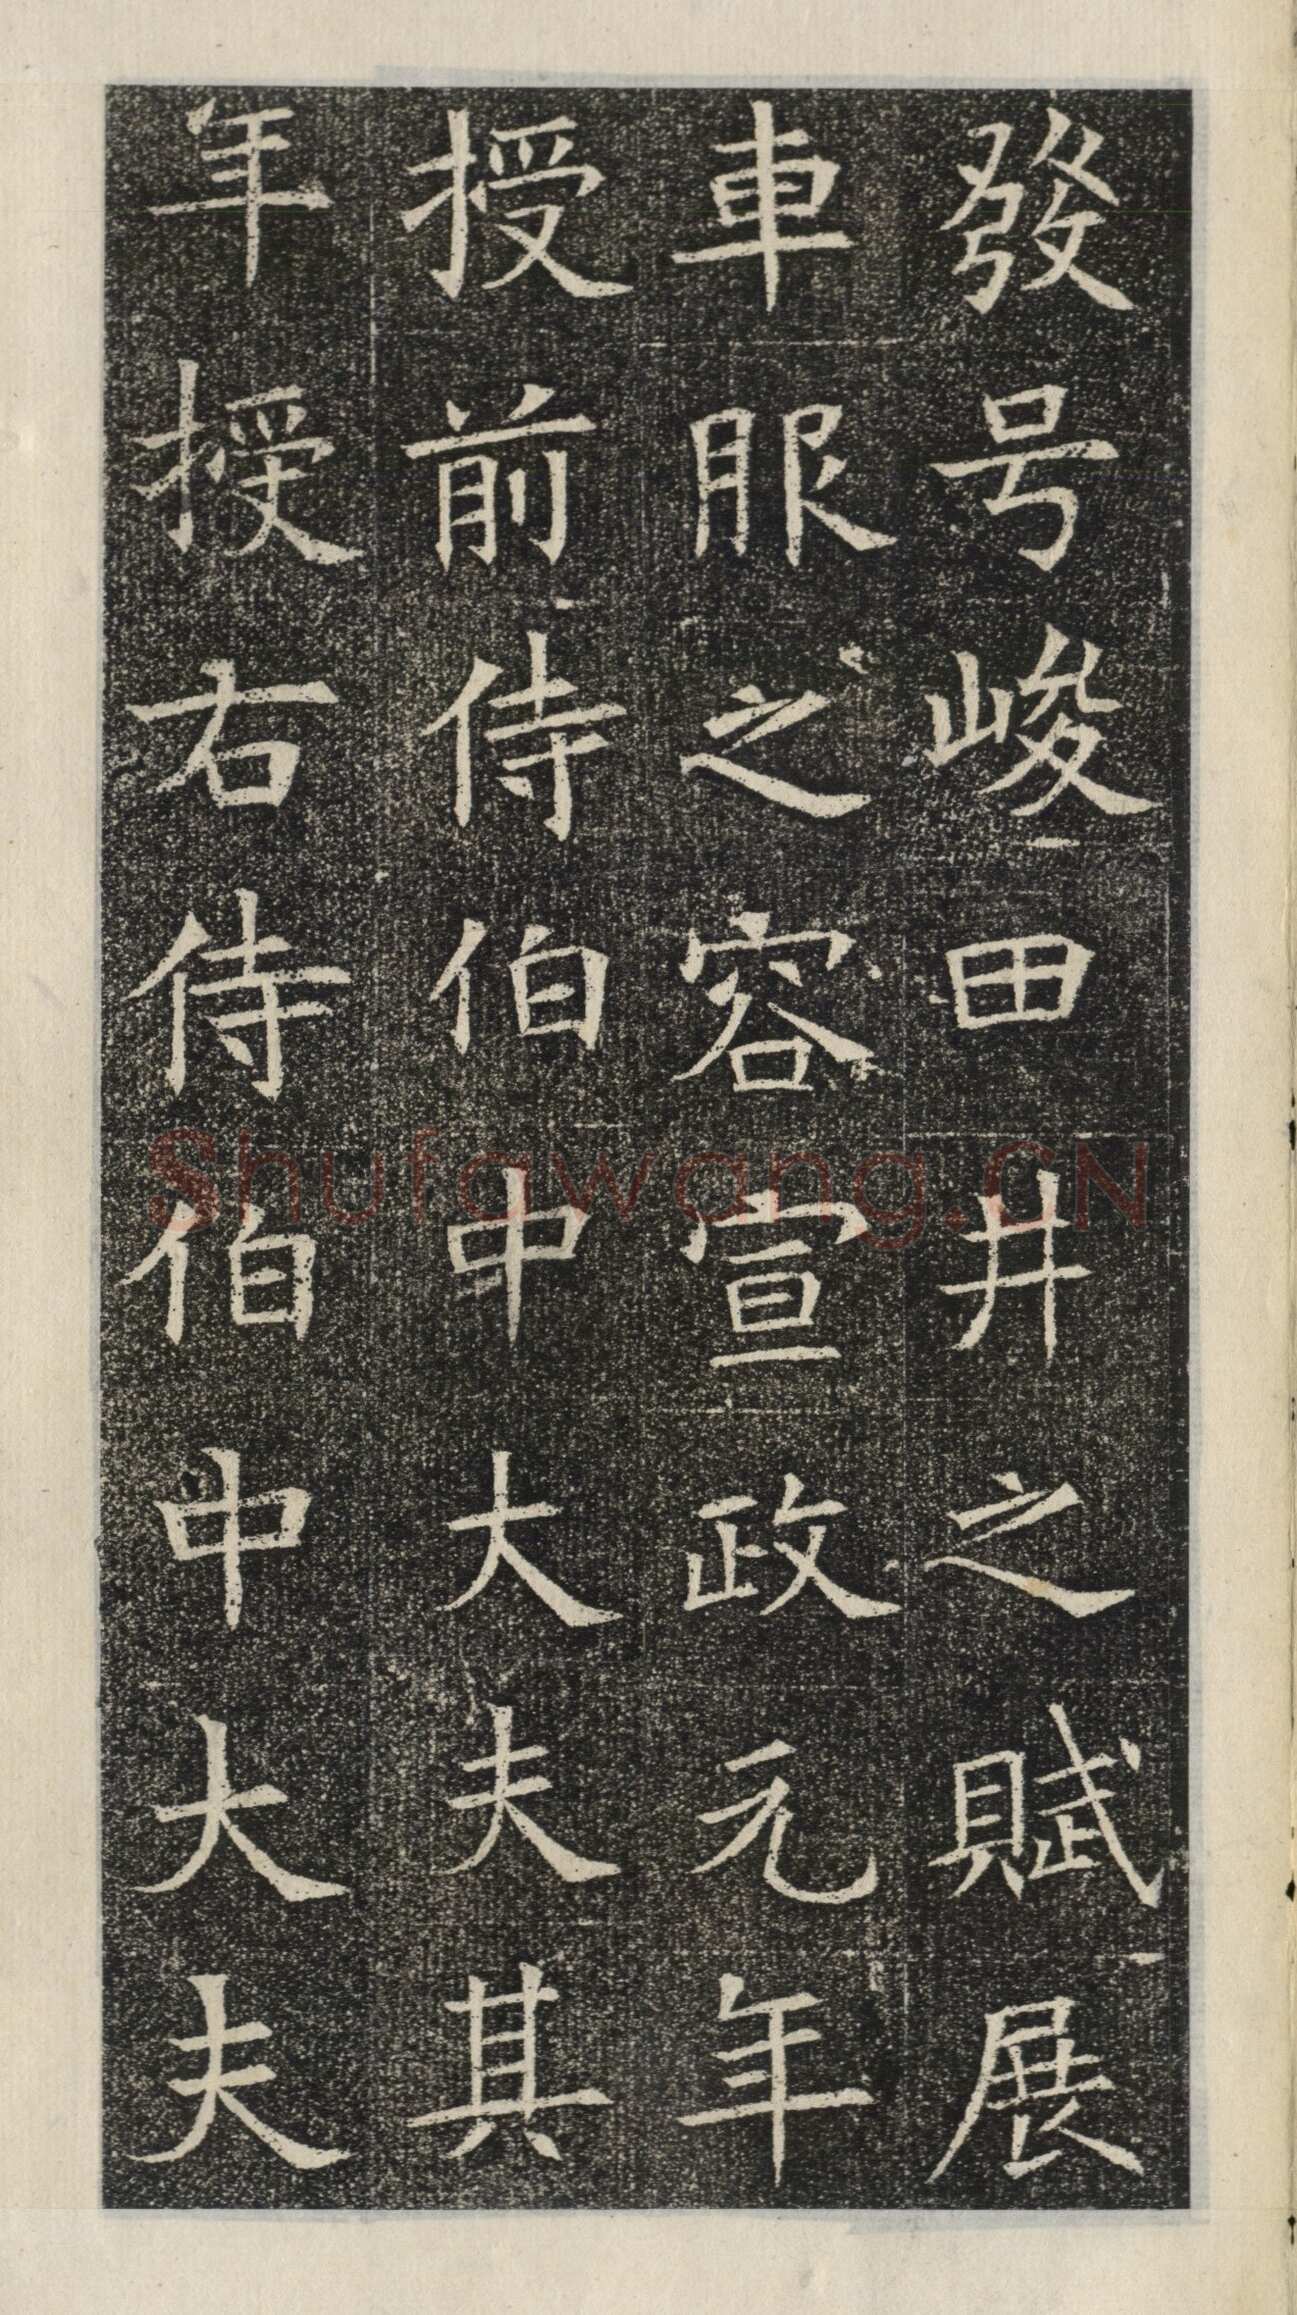 發号峻田井之賦展
車服之容宣政元年
授前侍伯中大夫其
年授右侍伯中大夫
Shufawang.CN